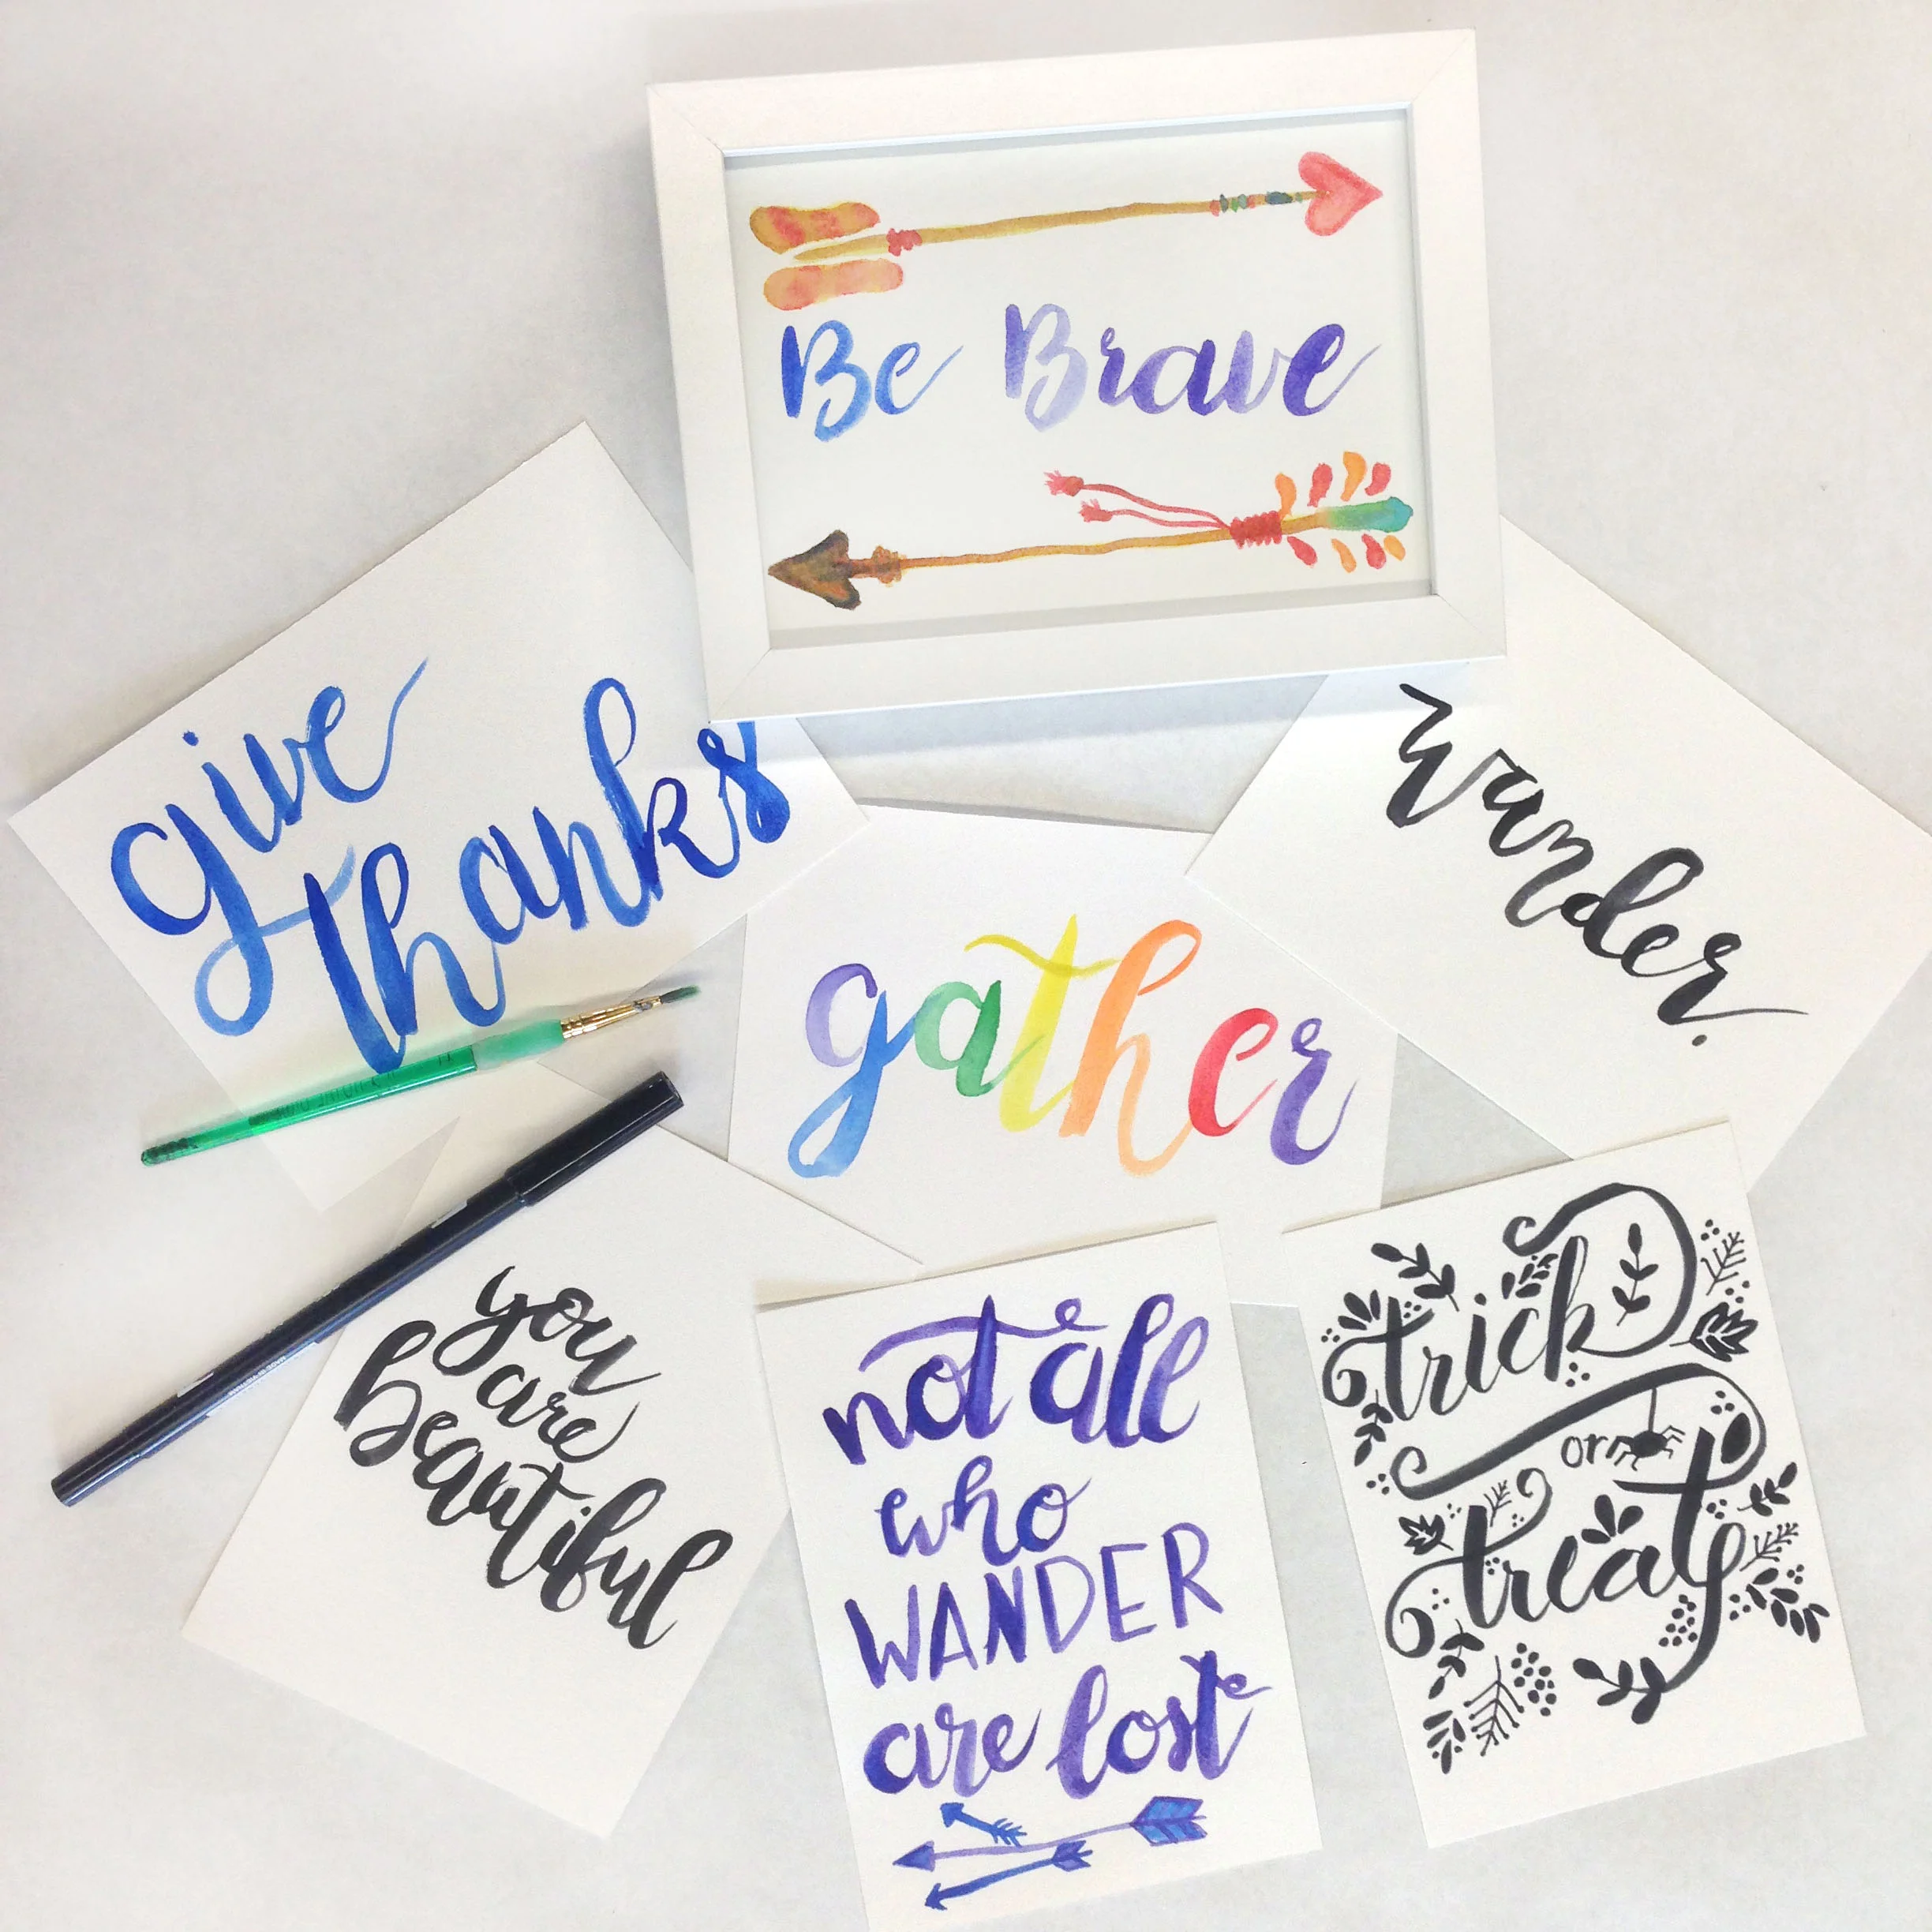 Be Brave
give
thanks
wander.
gather
you
are
beautiful
not all
who
WANDER
are lost
trick
or
treat